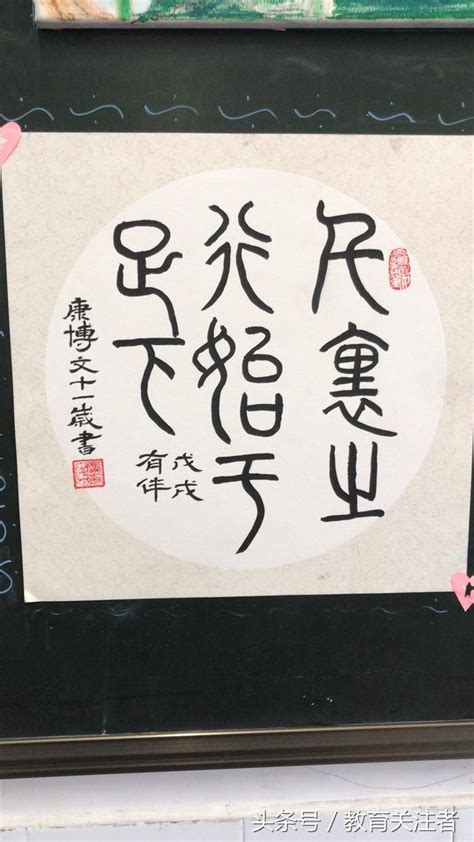 千裏之
行始于
足下
戊戌
有伴
康博文十一歲書
头条号 / 教育关注者